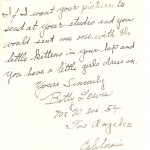 If I want your picture to
send at your studio and you
would sent me one with the
little kittens in your lap and
you have a little girls dress on.
Yours Sincerely
Betty Lewis
ave 54
Los Angeles
California